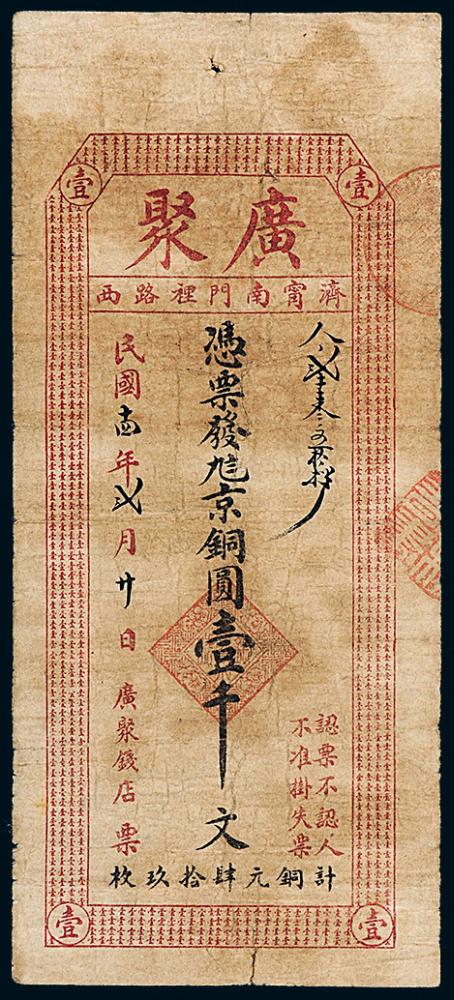 壹
壹
廣聚
濟甯南門裡路西
憑票發九京銅圓壹千文
認票不認人
不准掛失票
計銅元肆拾玖枚
民國年弍月廿日廣聚錢店票
壹
壹